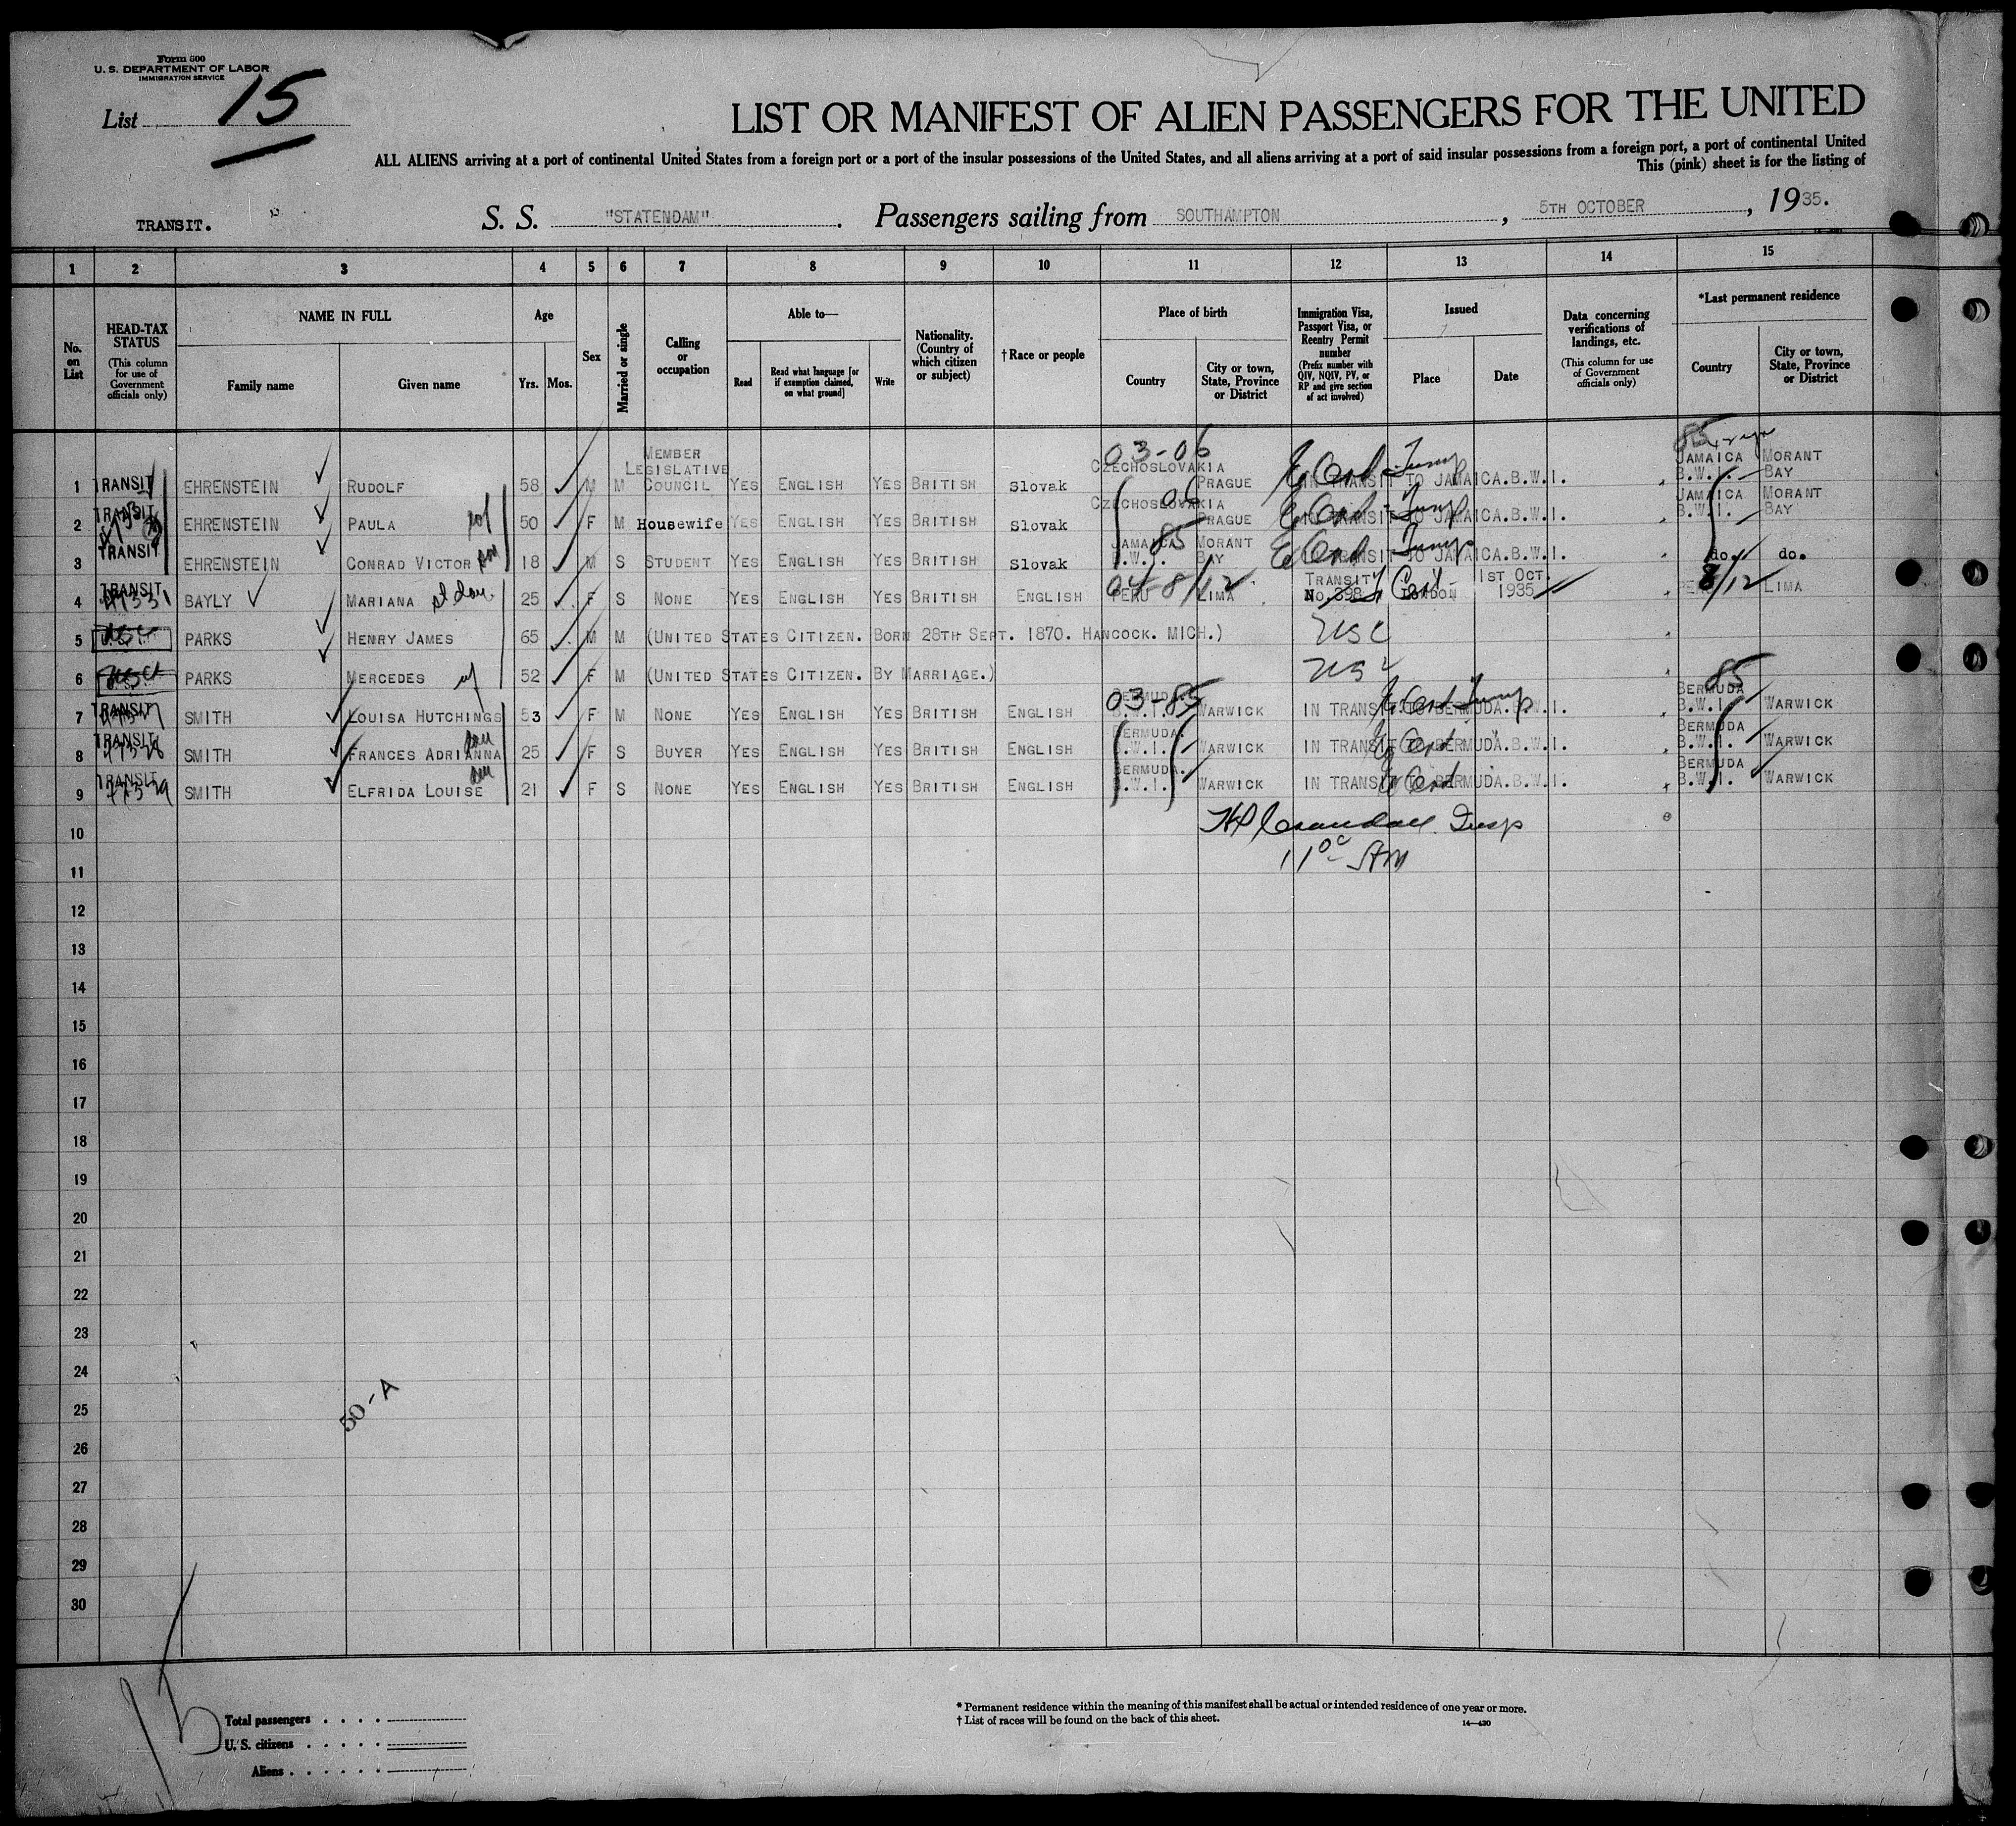 Form 500
U. S. DEPARTMENT OF LABOR
IMMIGRATION SERVICE
List 15
LIST OR MANIFEST OF ALIEN PASSENGERS FOR THE UNITED
ALL ALIENS arriving at a port of continental United States from a foreign port or a port of the insular possessions of the United States, and all aliens arriving at a port of said insular possessions from a foreign port, a port of continental United
This (pink) sheet is for the listing of
TRANSIT. S. S. "STATENDAM". Passengers sailing from SOUTHAMPTON, 5TH OCTOBER, 1935.
1 2 3 4 5 6 7 8 9 10 11 12 13 14 15
No. on List
HEAD-TAX STATUS
(This column for use of Government officials only)
NAME IN FULL
Family name
Given name
Age
Yrs. Mos.
Sex
Married or single
Calling or occupation
Able to—
Read
Read what language [or if exemption claimed, on what ground]
Write
Nationality. (Country of which citizen or subject)
† Race or people
Place of birth
Country
City or town, State, Province or District
Immigration Visa, Passport Visa, or Reentry Permit number
(Prefix number with QIV, NQIV, PV, or RP and give section of act involved)
Issued
Place
Date
Data concerning verifications of landings, etc.
(This column for use of Government officials only)
*Last permanent residence
Country
City or town, State, Province or District
03-06 85
1 TRANSIT EHRENSTEIN RUDOLF 58 M M MEMBER LEGISLATIVE COUNCIL YES ENGLISH YES BRITISH Slovak CZECHOSLOVAKIA PRAGUE IN TRANSIT TO JAMAICA.B.W.I. JAMAICA B.W.I. MORANT BAY
06
2 TRANSIT EHRENSTEIN PAULA 50 F M Housewife YES ENGLISH YES BRITISH Slovak CZECHOSLOVAKIA PRAGUE IN TRANSIT TO JAMAICA.B.W.I. JAMAICA B.W.I. MORANT BAY
85
3 TRANSIT EHRENSTEIN CONRAD VICTOR 18 M S STUDENT YES ENGLISH YES BRITISH Slovak JAMAICA B.W.I. MORANT BAY IN TRANSIT TO JAMAICA.B.W.I. do. do.
04-8/12 8/12
4 TRANSIT BAYLY MARIANA 25 F S NONE YES ENGLISH YES BRITISH ENGLISH PERU LIMA TRANSIT No.398 LONDON 1ST OCT. 1935 PERU LIMA
5 PARKS HENRY JAMES 65 M M (UNITED STATES CITIZEN. BORN 28TH SEPT. 1870. HANCOCK. MICH.) USC
6 PARKS MERCEDES wf 52 F M (UNITED STATES CITIZEN. BY MARRIAGE.) USC
03-85 85
7 TRANSIT SMITH LOUISA HUTCHINGS 53 F M NONE YES ENGLISH YES BRITISH ENGLISH BERMUDA. B.W.I. WARWICK IN TRANSIT TO BERMUDA.B.W.I. BERMUDA B.W.I. WARWICK
8 TRANSIT SMITH FRANCES ADRIANNA dau 25 F S BUYER YES ENGLISH YES BRITISH ENGLISH BERMUDA. B.W.I. WARWICK IN TRANSIT TO BERMUDA.B.W.I. BERMUDA B.W.I. WARWICK
9 TRANSIT SMITH ELFRIDA LOUISE dau 21 F S NONE YES ENGLISH YES BRITISH ENGLISH BERMUDA. B.W.I. WARWICK IN TRANSIT TO BERMUDA.B.W.I. BERMUDA B.W.I. WARWICK
10
11
12
13
14
15
16
17
18
19
20
21
22
23
24
25
50-A
26
27
28
29
30
Total passengers
U. S. citizens
Aliens
* Permanent residence within the meaning of this manifest shall be actual or intended residence of one year or more.
† List of races will be found on the back of this sheet.
14—430